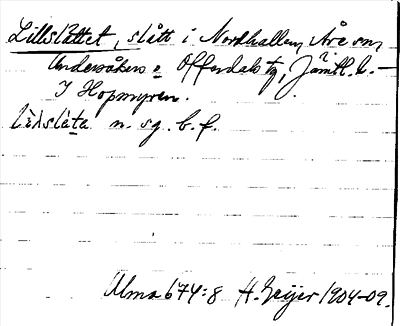 Lillslåttet, slått i Nordhallen, Åre sn,
Undersåkers o Offerdals tg, Jämtl. l. –
I Hopmyren.
n. sg. b. f.
Ulma 674:8 H. Geijer 1904-09.